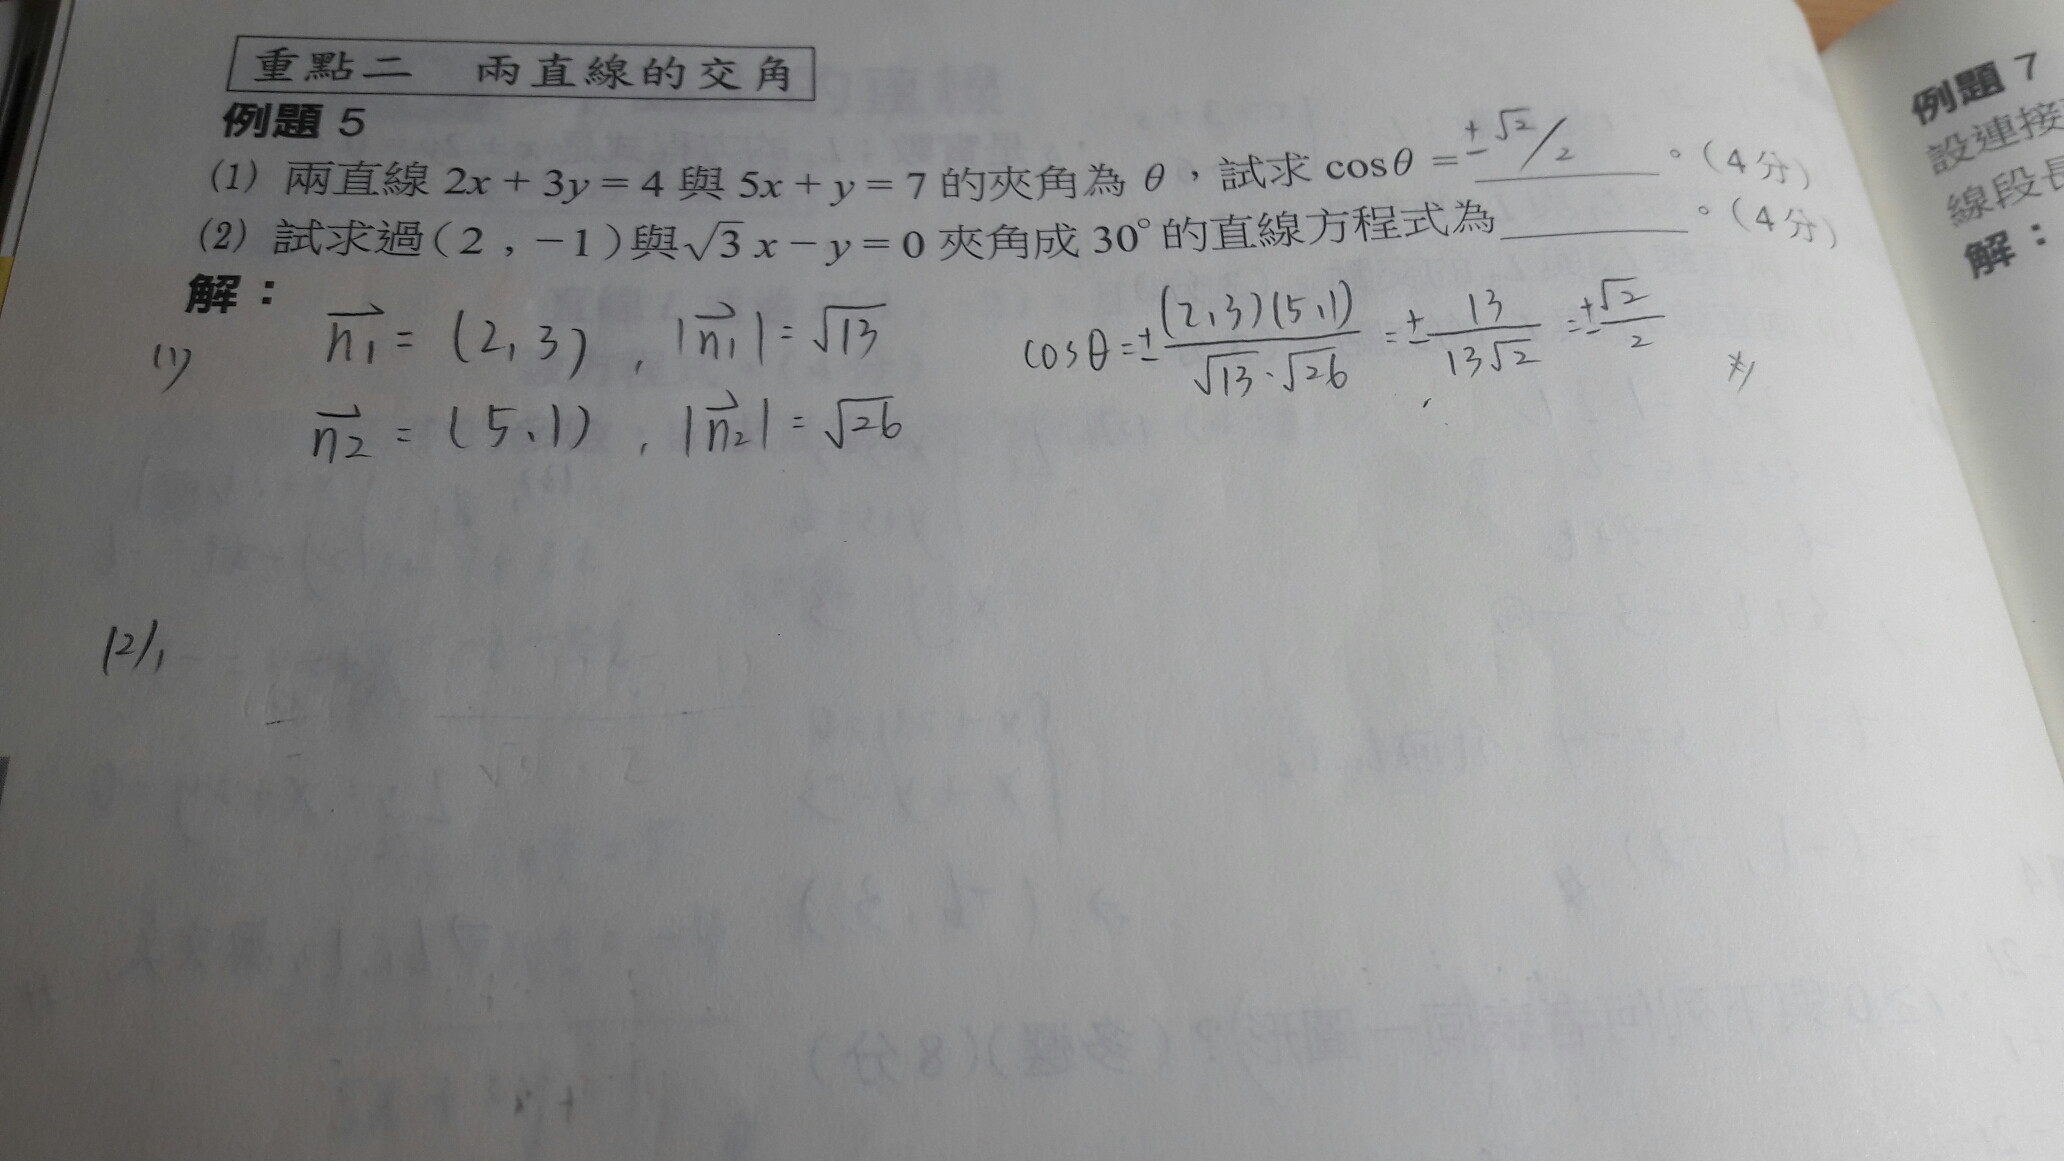 重點二 兩直線的交角
例題 5
(1) 兩直線 2x + 3y = 4 與 5x + y = 7 的夾角為 θ，試求 cosθ = ±√2/2 。(4分)
(2) 試求過(2 , −1)與√3 x − y = 0 夾角成 30° 的直線方程式為______。(4分)
解：
(1) n₁ = (2, 3) , |n₁| = √13 cosθ = ± (2,3)(5,1) / √13·√26 = ± 13 / 13√2 = ± √2 / 2
n₂ = (5, 1) , |n₂| = √26
(2)
例題 7
設連接
線段長
解：